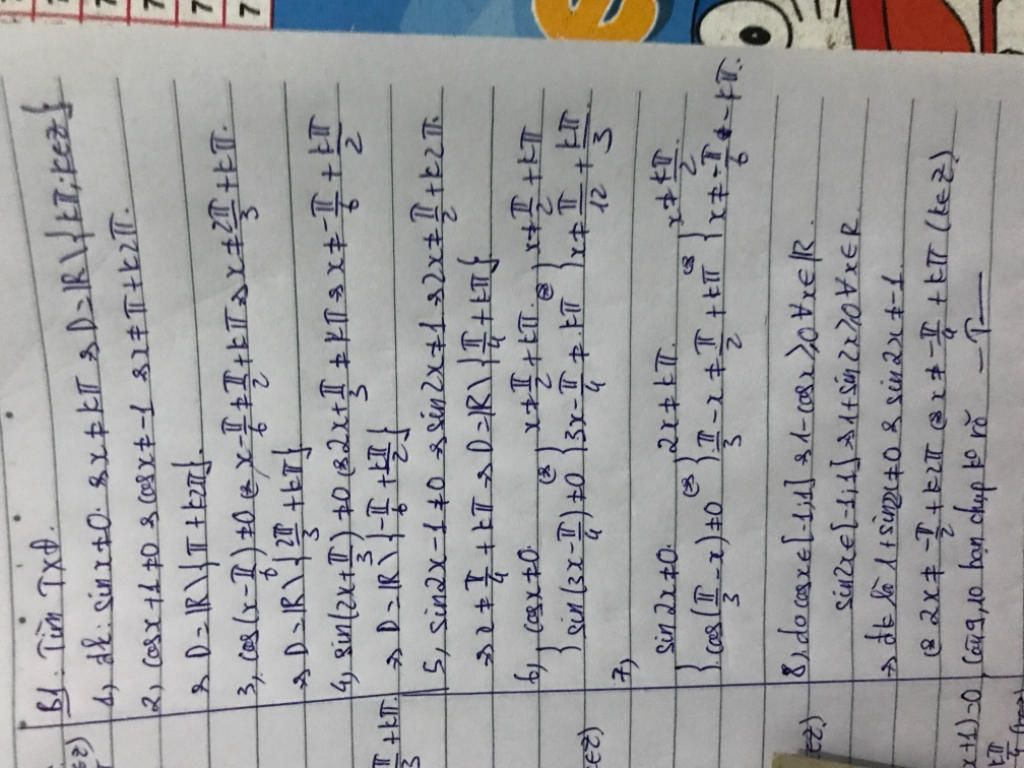 B1: Tìm TXĐ.
1, đk: sinx ≠ 0. ⇒ x ≠ kπ ⇒ D = ℝ \ {kπ; k∈Z}
2, cosx + 1 ≠ 0 ⇒ cosx ≠ -1 ⇒ x ≠ π + k2π.
⇒ D = ℝ \ {π + k2π}.
3, cos(x - π/6) ≠ 0 ⇔ x - π/6 ≠ π/2 + kπ ⇒ x ≠ 2π/3 + kπ.
⇒ D = ℝ \ {2π/3 + kπ}
4, sin(2x + π/3) ≠ 0 ⇔ 2x + π/3 ≠ kπ ⇒ x ≠ -π/6 + kπ/2
⇒ D = ℝ \ {-π/6 + kπ/2}
5, sin2x - 1 ≠ 0 ⇒ sin2x ≠ 1 ⇒ 2x ≠ π/2 + k2π.
⇒ x ≠ π/4 + kπ ⇒ D = ℝ \ {π/4 + kπ}
6, { cosx ≠ 0 ⇔ { x ≠ π/2 + kπ. ⇔ { x ≠ π/2 + kπ
sin(3x - π/4) ≠ 0 3x - π/4 ≠ kπ x ≠ π/12 + kπ/3
7,
{ sin2x ≠ 0 ⇔ { 2x ≠ kπ. ⇔ { x ≠ kπ/2
cos(π/3 - x) ≠ 0 π/3 - x ≠ π/2 + kπ x ≠ -π/6 - kπ.
8, do cosx ∈ [-1,1] ⇒ 1 - cosx ≥ 0 ∀x ∈ ℝ.
sin2x ∈ [-1,1] ⇒ 1 + sin2x ≥ 0 ∀x ∈ R
⇒ đk là 1 + sin2x ≠ 0 ⇒ sin2x ≠ -1
⇔ 2x ≠ -π/2 + k2π ⇔ x ≠ -π/4 + kπ (k∈Z)
Câu 9, 10 bạn chụp ko rõ
∈Z)
π/3 + kπ.
∈Z)
∈Z)
x+1) = 0
7
7
7